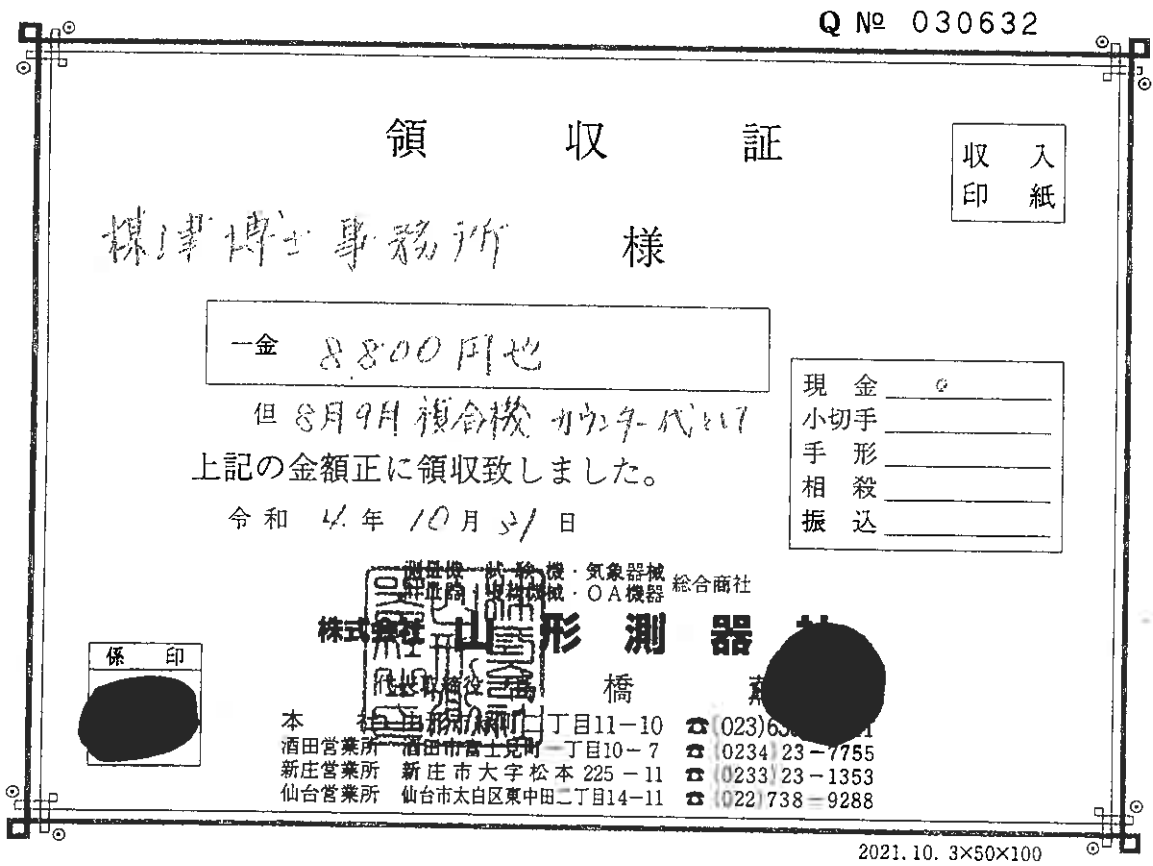 Q № 030632
領収証
収入
印紙
博士事務所 様
一金 8,800円也
但 8月9月 複合機 カウンター代として
上記の金額正に領収致しました。
令和 4年 10月 31日
現金 o
小切手
手形
相殺
振込
測量機・試験機・気象器械
・OA機器 総合商社
株式会社 山形測器社
代表取締役 高橋
係印
本社 山形市緑町二丁目11-10 ☎(023)63
酒田営業所 酒田市富士見町一丁目10-7 ☎(0234)23-7755
新庄営業所 新庄市大字松本225-11 ☎(0233)23-1353
仙台営業所 仙台市太白区東中田二丁目14-11 ☎(022)738-9288
2021.10. 3×50×100